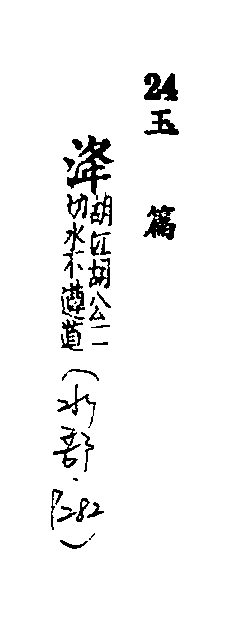 24
玉篇
洚 胡江胡公二
切水不遵道
(水部·P282)